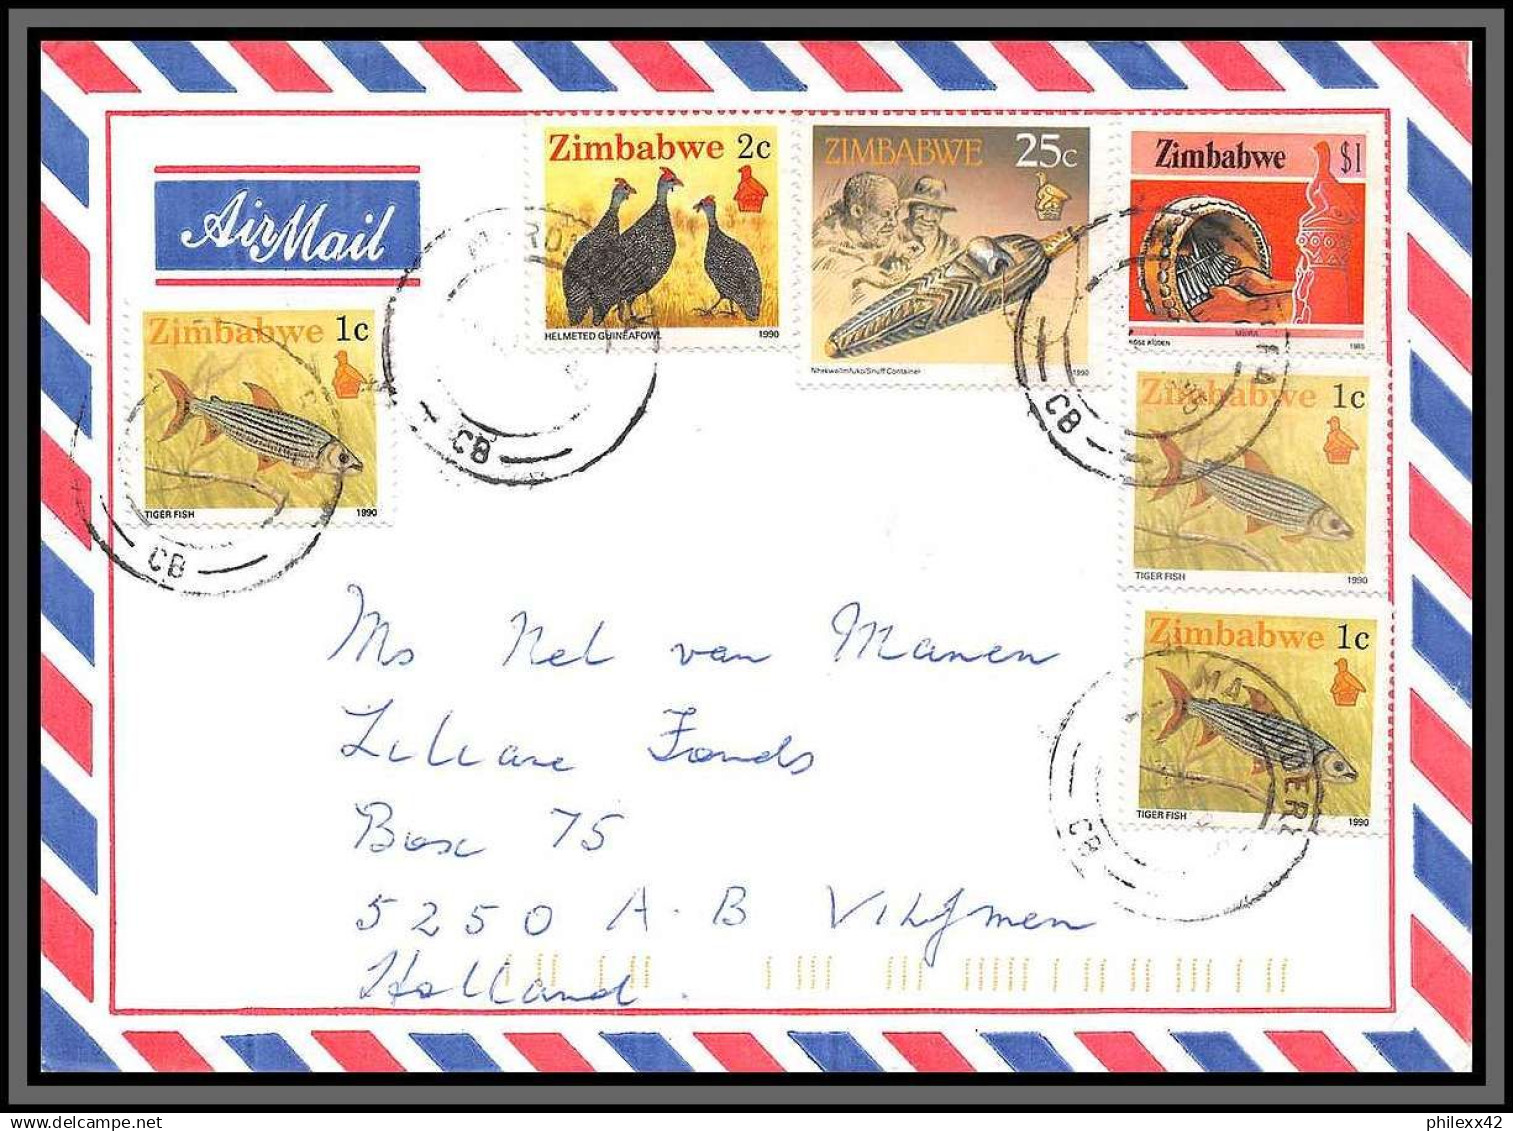 Air Mail
Zimbabwe 2c
HELMETED GUINEAFOWL 1990
ZIMBABWE 25c
Nhekwa/Imfuko/Snuff Container 1990
Zimbabwe $1
MBIRA
ROSE RUDEN 1985
Zimbabwe 1c
TIGER FISH 1990
CB
CB
CB
Zimbabwe 1c
TIGER FISH 1990
Zimbabwe 1c
TIGER FISH 1990
CB
Ms Nel van Manen
Liliane Fonds
Box 75
5250 A.B Vilijmen
Holland.
philexx42